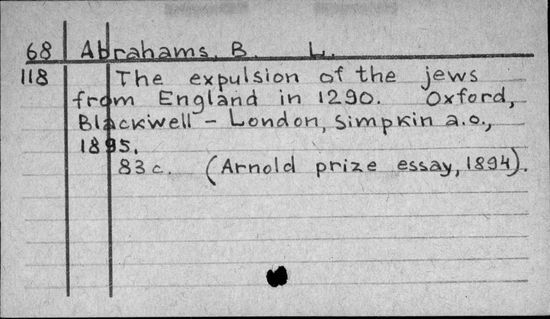 68 Abrahams, B. L.
118 The expulsion of the jews
from England in 1290. Oxford,
Blackwell – London, Simpkin a.o.,
1895.
83 c. (Arnold prize essay, 1894).